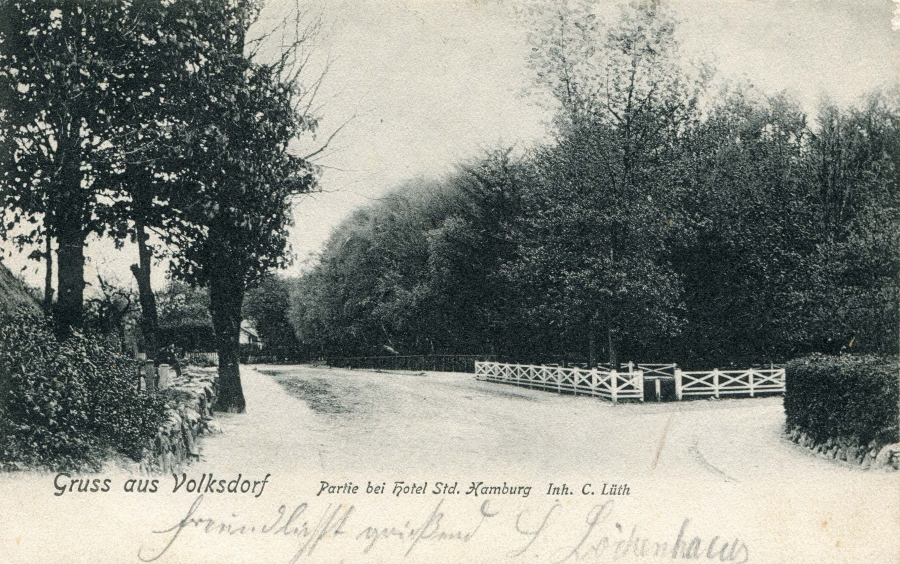 Gruss aus Volksdorf Partie bei Hotel Std. Hamburg Inh. C. Lüth
Freundlichst grüßend